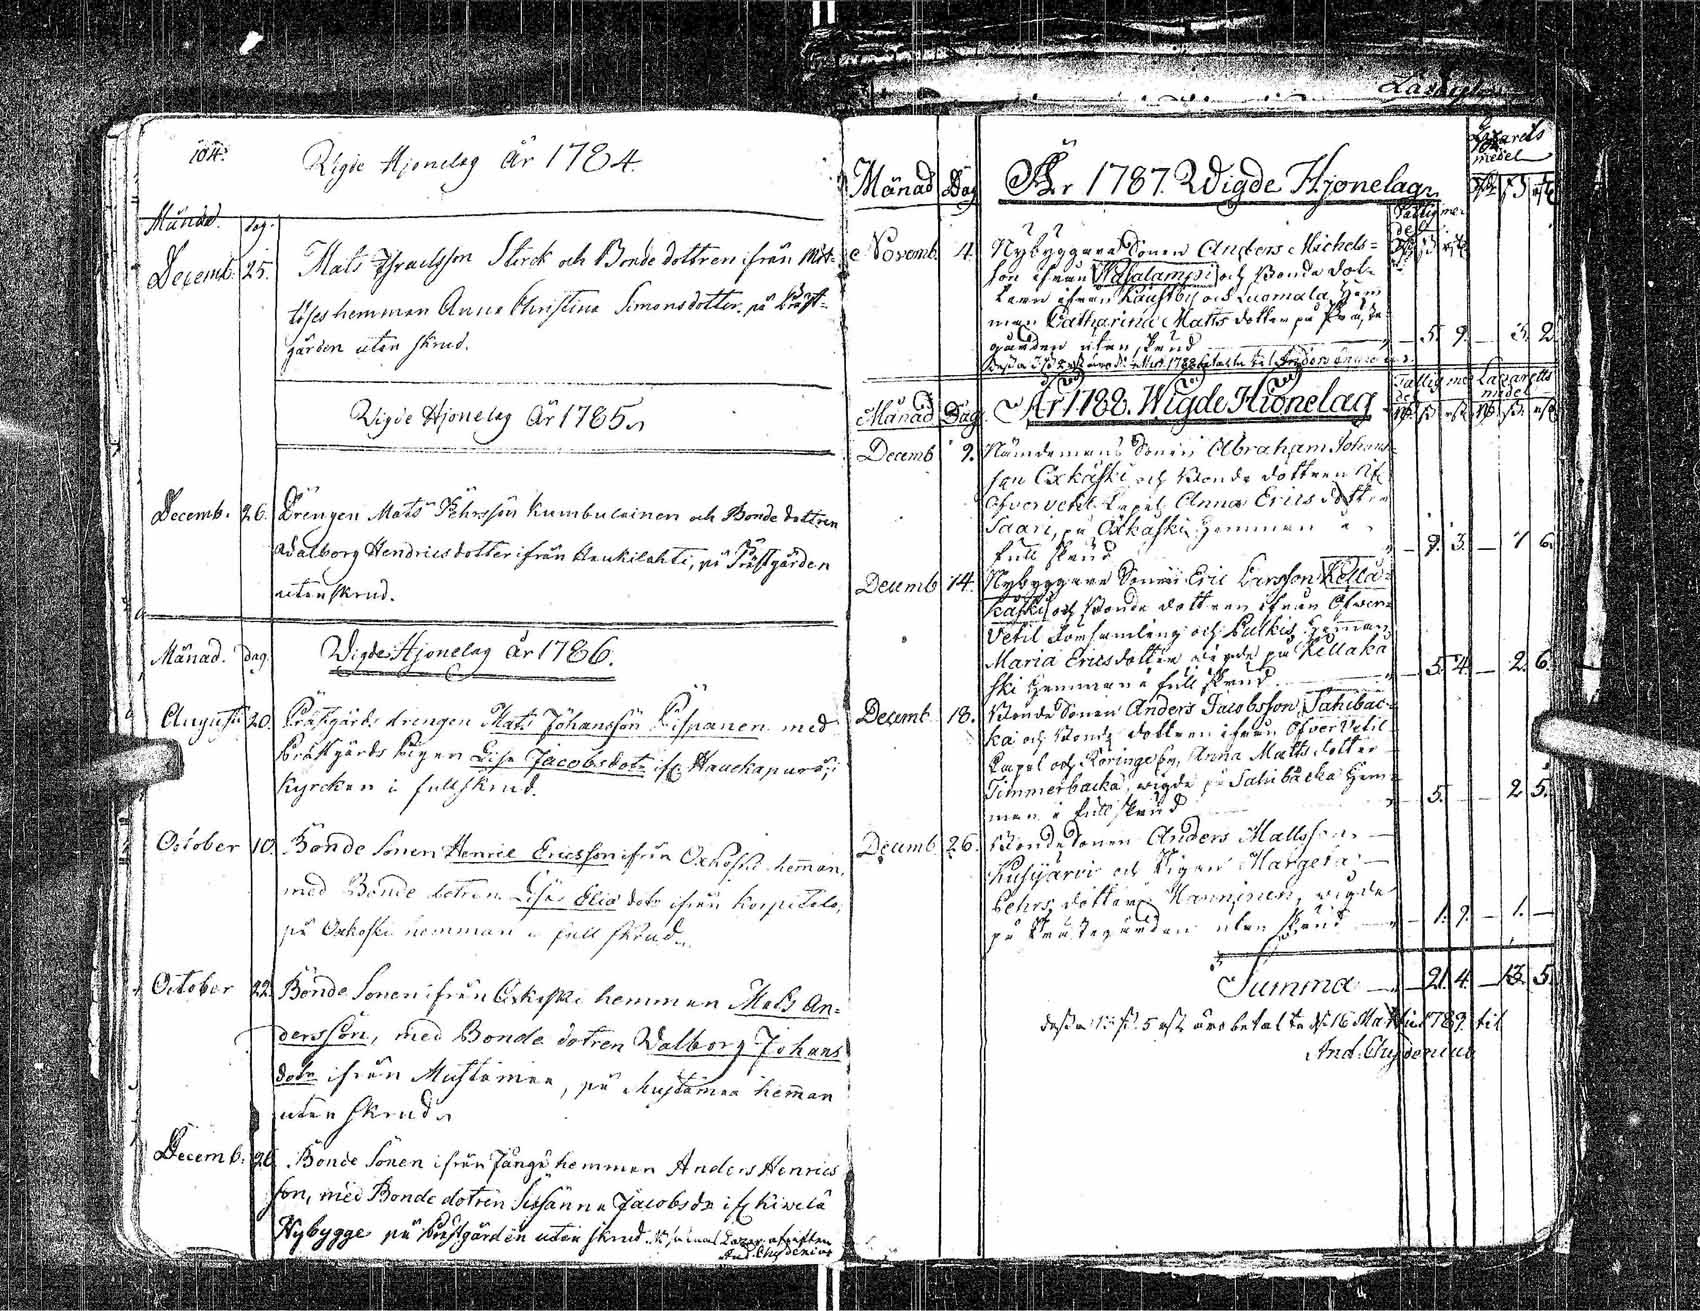 104.
Wigde Hjonelag År 1784.
Månad. dag.
Decemb. 25. Mats Israelsson Slirck och Bonde dottren ifrån
hemman Anna Christina Simonsdotter, på Präst-
gården utan skrud.
Wigde Hjonelag År 1785.
Decemb. 26. Drengen Mats Pehrsson Kumbulainen och Bonde dottren
Walborg Hendricsdotter ifrån Haukilahti, på Prästgården
utan skrud.
Månad. dag. Wigde Hjonelag År 1786.
Augusti 20. Prästgårds drengen Mats Johansson Pispanen med
Prästgårds Pigan Lisa Jacobsdotr if. Hauckapuro, i
Kyrckan i full skrud.
October 10. Bonde Sonen Henric Ericsson ifrån Oxkoski hemman,
med Bonde dotren Lisa Elia dotr ifrån Korpitalo,
på Oxkoski hemman i full skrud.
October 22. Bonde Sonen ifrån Oxkoski hemman Mats An-
dersson, med Bonde dotren Walborg Johans
dotr ifrån Mustamaa, på Mustamaa hem̄an
utan skrud.
Decemb. 26. Bonde Sonen ifrån Jånga hemman Anders Henrics
son, med Bonde dotren Susanna Jacobsdr if. Kiwelä
Nybygge på Prästgården utan skrud.
And. Chydenius
Lazaretts
medel
Månad Dag År 1787. Wigde Hjonelag
Fattig me-
del
Novemb. 4. Nybyggare Sonen Anders Michels=
son ifrån och Bonde dot-
tren ifrån Kaustby och Luomala Hem
man Catharina Matts dotter på Präste
gården utan skrud 5. 9. 3. 2.
Månad Dag. År 1788. Wigde Hjonelag Fattig me
del Lazaretts
medel
Decemb 9. Nämdemans Sonen Abraham Johans
son Oxkåski och Bonde dottren if.
Öfvervetil Capel Anna Erics dotter
Saari, på Oxkåski Hemman i
full skrud 9. 3. 1 6.
Decemb 14. Nybyggare Sonen Eric Larsson Kellå-
kåski och Bonde dottren ifrån Öfver
Vetil Församling och Pulkis Hemman
Maria Ericsdotter wigde på Killåkå
ski Hemman i full skrud 5. 4. 2. 6.
Decemb 18. Bonde Sonen Anders Jacobsson Sahibac-
ka och Bonde dottren ifrån Öfver Vetil
Capel och Röringe by, Anna Matts dotter
Timmerbacka, wigde på Sahibacka Hem-
man i full skrud 5. 2 5.
Decemb 26. Bonde Sonen Anders Mattsson
Kusijärvi och Pigan Margeta
Pehrs dotter Manninen, wigde
på Prästegården utan skrud 1. 9. 1.
Summa 21. 4. 13. 5.
Dessa 13 s. 5 rst. äro betalte d. 16 Martii 1789. til
And. Chydenius